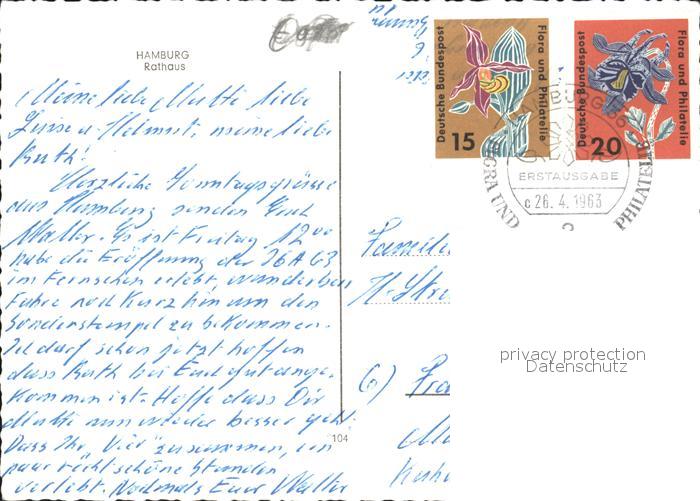 HAMBURG
Rathaus
Meine liebe Mutti liebe
Helmut, meine liebe
Ruth!
Herzliche Sonntagsgrüsse
aus Hamburg senden Euch
Walter. Es ist Freitag 12 00
habe die Eröffnung der IGA 63
im Fernsehen erlebt, wunderbar
Fahre noch kurz hin um den
Sonderstempel zu bekommen.
Ich darf schon jetzt hoffen
dass Ruth bei Euch gut ange-
kommen ist. Hoffe dass Dir
Mutti nun wieder besser geht.
Dass Ihr "Vier" zusammen, ein
paar recht schöne Stunden
verlebt. Nochmals Euer Walter
104
Deutsche Bundespost
Flora und Philatelie
15
Deutsche Bundespost
Flora und Philatelie
20
ERSTAUSGABE
c 26. 4. 1963
c
FLORA UND
PHILATELIE
Familie
6)
privacy protection
Datenschutz